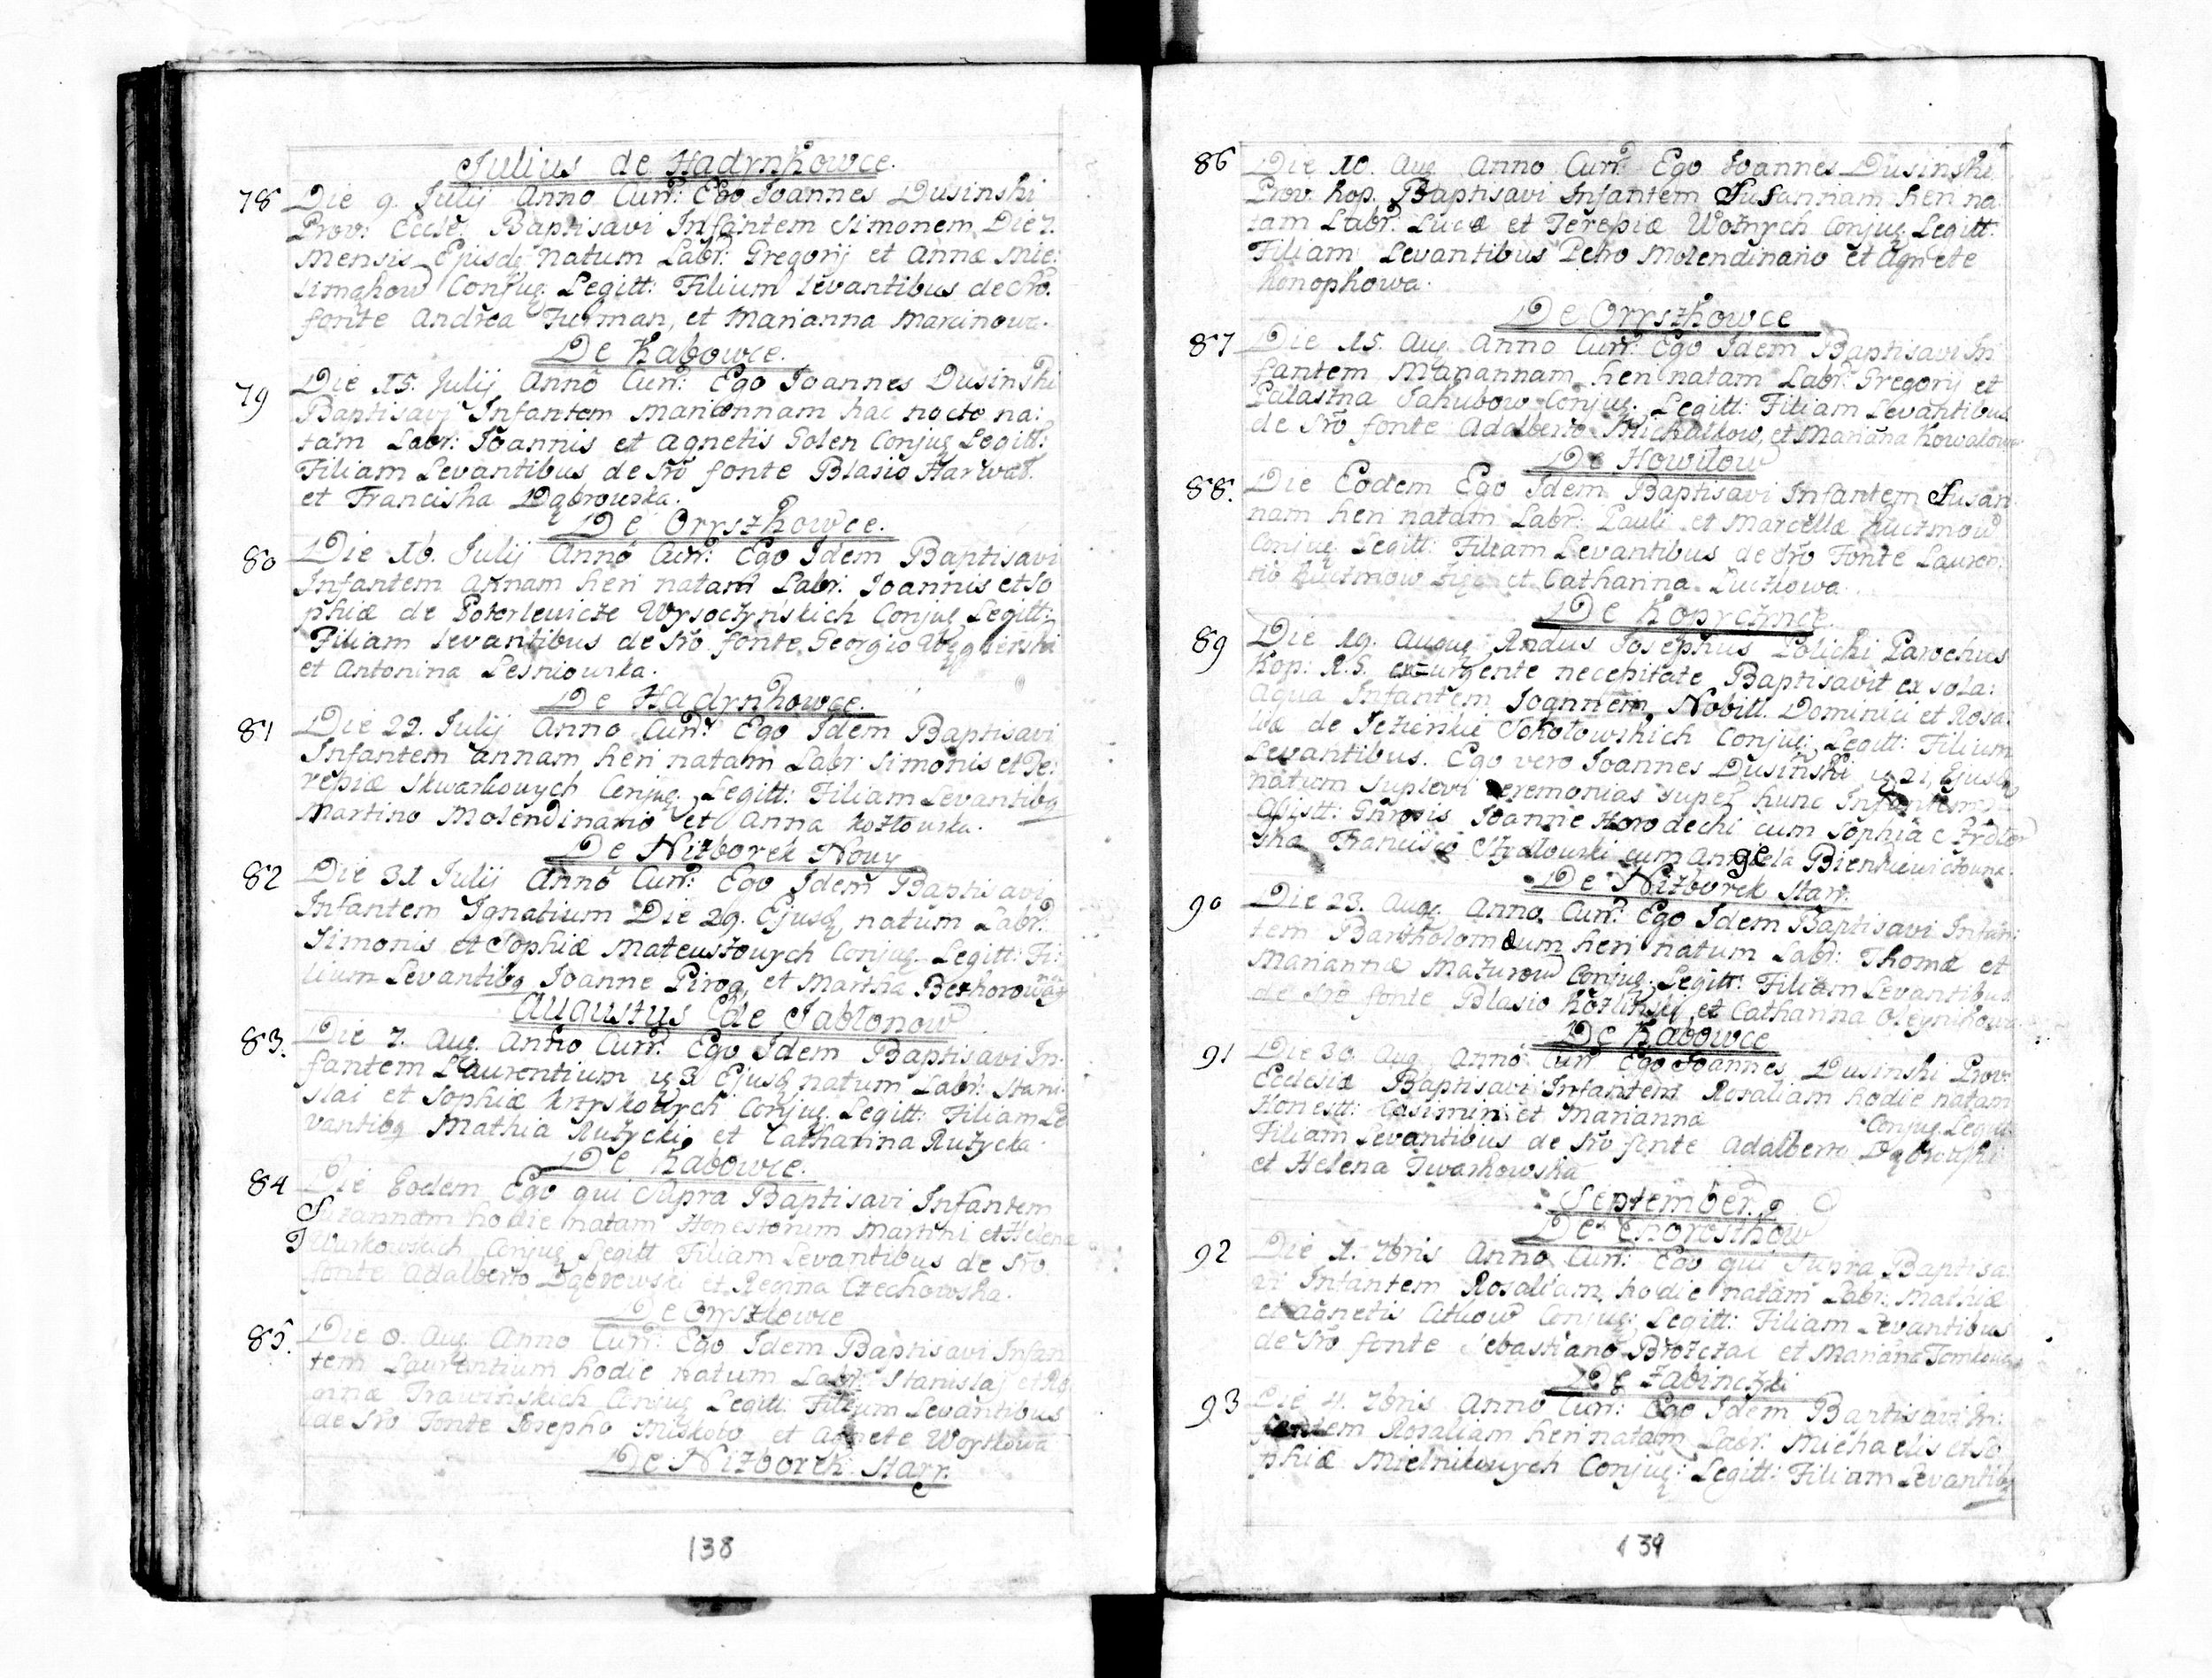 Julius de Hadynkowce.
78 Die 9. Julij Anno Curr: Ego Joannes Dusinski
Prov: Eccle: Baptisavi Infantem Simonem Die 7.
mensis Ejusd: natum Labr: Gregorij et Annæ Mie:
simakow Conjug: Legitt: Filium Levantibus de Sro.
fonte Andrea Furman, et Marianna Marcinowa.
De Kabowce.
79 Die 15. Julij Anno Curr: Ego Joannes Dusinski
Baptisavi Infantem Mariannam hac nocte na:
tam Labr: Joannis et Agnetis Golen Conjug Legitt:
Filiam Levantibus de Sro fonte Blasio Harwas.
et Franciska Dąbrowska.
De Oryszkowce.
80 Die 16. Julij Anno Curr: Ego Idem Baptisavi
Infantem Annam heri natam Labr: Joannis et So
phiæ de Poterlewicze Wysoczynskich Conjug Legitt:
Filiam Levantibus de Sro fonte Georgio
et Antonina Lesniowska.
De Hadynkowce.
81 Die 22. Julij Anno Curr: Ego Idem Baptisavi
Infantem Annam heri natam Labr Simonis et Te:
resiæ Skwarkowych Conjug: Legitt: Filiam Levantibq
Martino Molendinario et Anna Kozłowska.
De Niżborek Nowy
82 Die 31 Julij Anno Curr: Ego Idem Baptisavi
Infantem Ignatium Die 29. Ejusd natum Labr:
Simonis et Sophiæ Mateuszowych Conjug. Legitt: Fi:
lium Levantibq Joanne Pirog, et Martha
Augustus de Jabłonow
83. Die 7. Aug. Anno Curr: Ego Idem Baptisavi In:
fantem Laurentium 3 Ejusd natum Labr: Stani:
slai et Sophiæ Krzyskowych Conjug. Legitt: Filiam Le
vantibq Mathia Rużycki, et Catharina Rużycka.
De Kabowce.
84 Die Eodem Ego qui Supra Baptisavi Infantem
Suzannam hodie natam Honestorum Martini et Helena
Twarkowskich Conjug Legitt Filiam Levantibus de Sro
fonte Adalberto Dąbrowski et Regina Czechowska.
De Oryszkowce
85. Die 8. Aug. Anno Curr: Ego Idem Baptisavi Infan
tem Laurentium hodie natum Labr: Stanislaj et Ro
Trawinskich Conjug Legitt: Filium Levantibus
de Sro Fonte Josepho et Agnete Woytkowa
De Niżborek Stary.
138
86 Die 10. Aug Anno Curr: Ego Joannes Dusinski
Prov. Kop. Baptisavi Infantem Susannam heri na
tam Labr. Lucæ et Teresiæ Woźnych Conjug Legitt:
Filiam Levantibus Petro Molendinario et Agnete
Konopkowa.
De Oryszkowce
87 Die 15. Aug. Anno Curr: Ego Idem Baptisavi In
fantem Mariannam heri natam Labr: Gregorij et
Jakubow Conjug. Legitt: Filiam Levantibus
de Sro fonte Adalberto Michałkow, et Mariana Kowalowa
De Howiłow
88. Die Eodem Ego Idem Baptisavi Infantem Susan
nam heri natam Labr: Pauli et Marcellæ
Conjug Legitt: Filiam Levantibus de Sro Fonte Lauren:
tio et Catharina
De Kopyczynce.
89 Die 19. Augug Rndus Josephus Polichi Parochus
Kop: R.S. ex urgente necessitate Baptisavit ex sola:
aqua Infantem Joannem, Nobill. Dominici et Rosa:
liæ de Jezierskie Sokołowskich Conjug: Legitt: Filium
Levantibus. Ego vero Joannes Dusinski, 21, Ejusd
natum suplevi ceremonias super hunc Infantem
Assistt: Gnrosis Joanne Horodecki cum Sophia
Francisco cum Angela Bienkiewiczowna.
De Niżborek Star:
90 Die 23. Aug. Anno Curr: Ego Idem Baptisavi Infan:
tem Bartholomæum heri natum Labr: Thomæ et
Mariannæ Mazurow Conjug. Legitt: Filiam Levantibus
de Sro fonte Blasio Kozlinski, et Catharina Oleynikowa
De Kabowce
91 Die 30. Aug. Anno Curr Ego Joannes Dusinski Prov:
Ecclesiæ Baptisavi Infantem Rosaliam hodie natam
Honestt: Casimiri et Marianna Conjug Legitt
Filiam Levantibus de Sro fonte Adalberto Dąbrowski
et Helena Twarkowska
September.
De Chorostkow
92 Die 1. 7bris Anno Curr: Ego qui Supra Baptisa
vi Infantem Rosaliam, hodie natam Labr: Mathiæ
et Agnetis Conjug: Legitt: Filiam Levantibus
de Sro fonte Sebastiano et Mariana Tomkowa
De Zabinczyki
93 Die 4. 7bris Anno Curr: Ego Idem Baptisavi In:
fantem Rosaliam heri natam Labr: Michaelis et So
phiæ Mielnikowych Conjug: Legitt: Filiam Levantibq
139